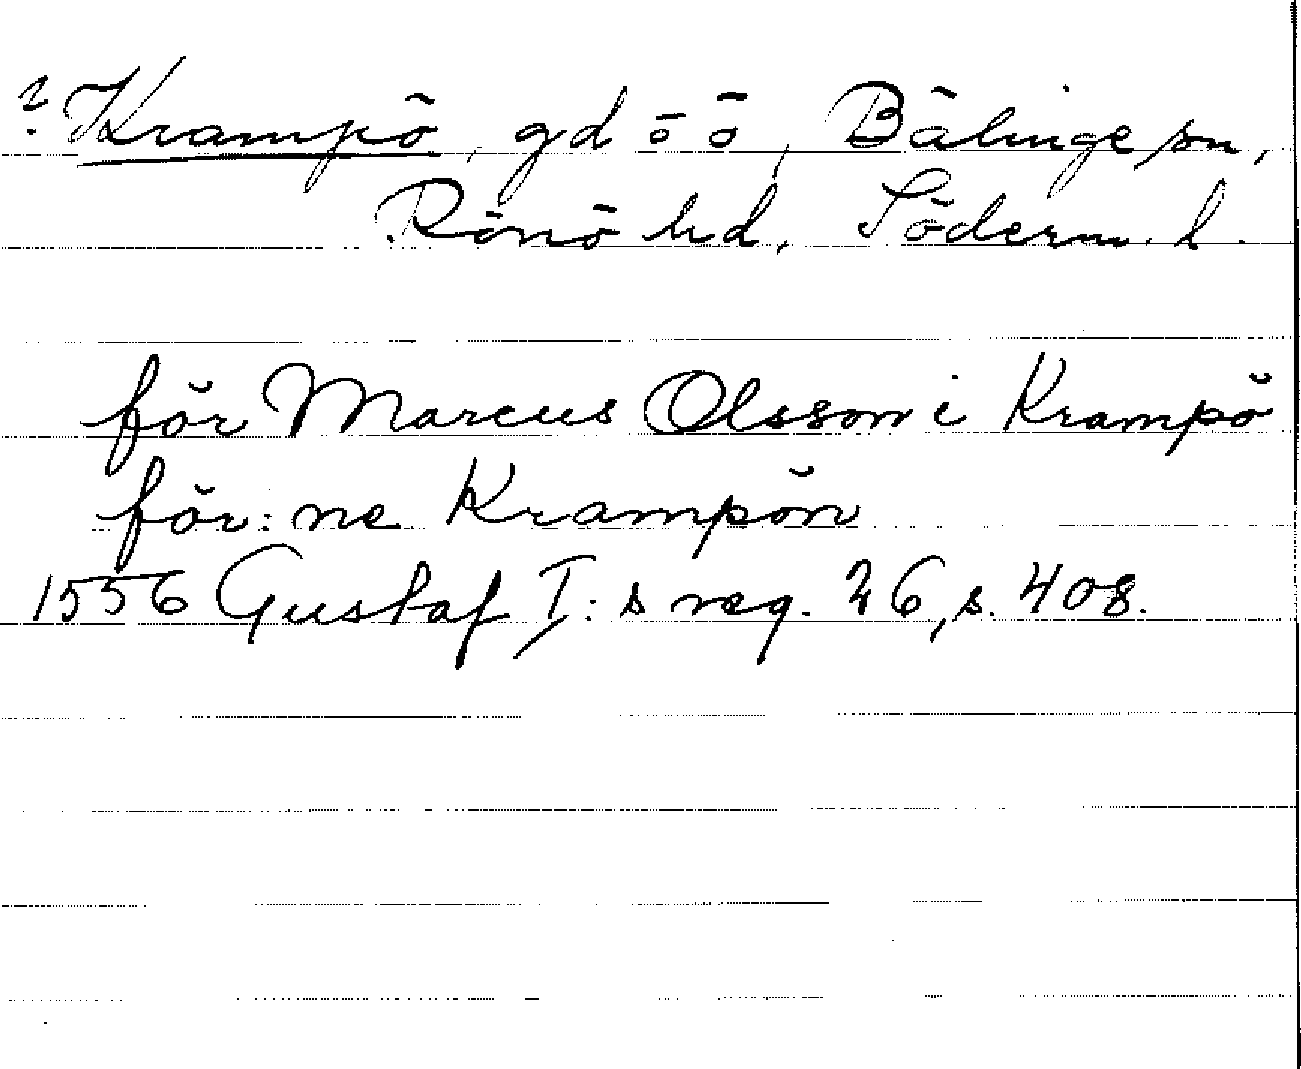 ? Krampö, gd å ö, Bälinge sn,
Rönö hd, Söderm. l.
för Marcus Olsson i Krampö
för:ne Krampön
1556 Gustaf I:s reg. 26, s. 408.